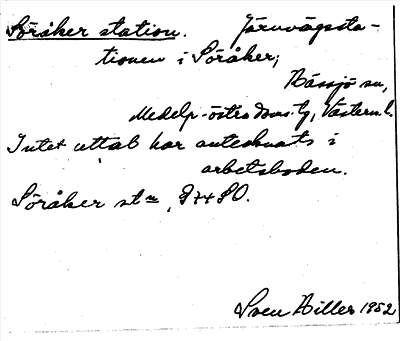 Söråker station. Järnvägssta-
tionen i Söråker;
Hässjö sn,
Medelp. östra doms.lg, Västern. l.
Intet uttal har antecknats i
arbetsboden.
Söråker st:n, 974 SO.
Sven Hiller 1952